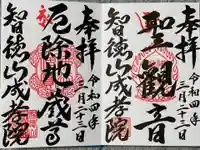 奉拝
令和四年
三月二十二日
聖観音
智徳山成孝院
奉拝
令和四年
三月二十二日
厄除地蔵尊
智徳山成孝院